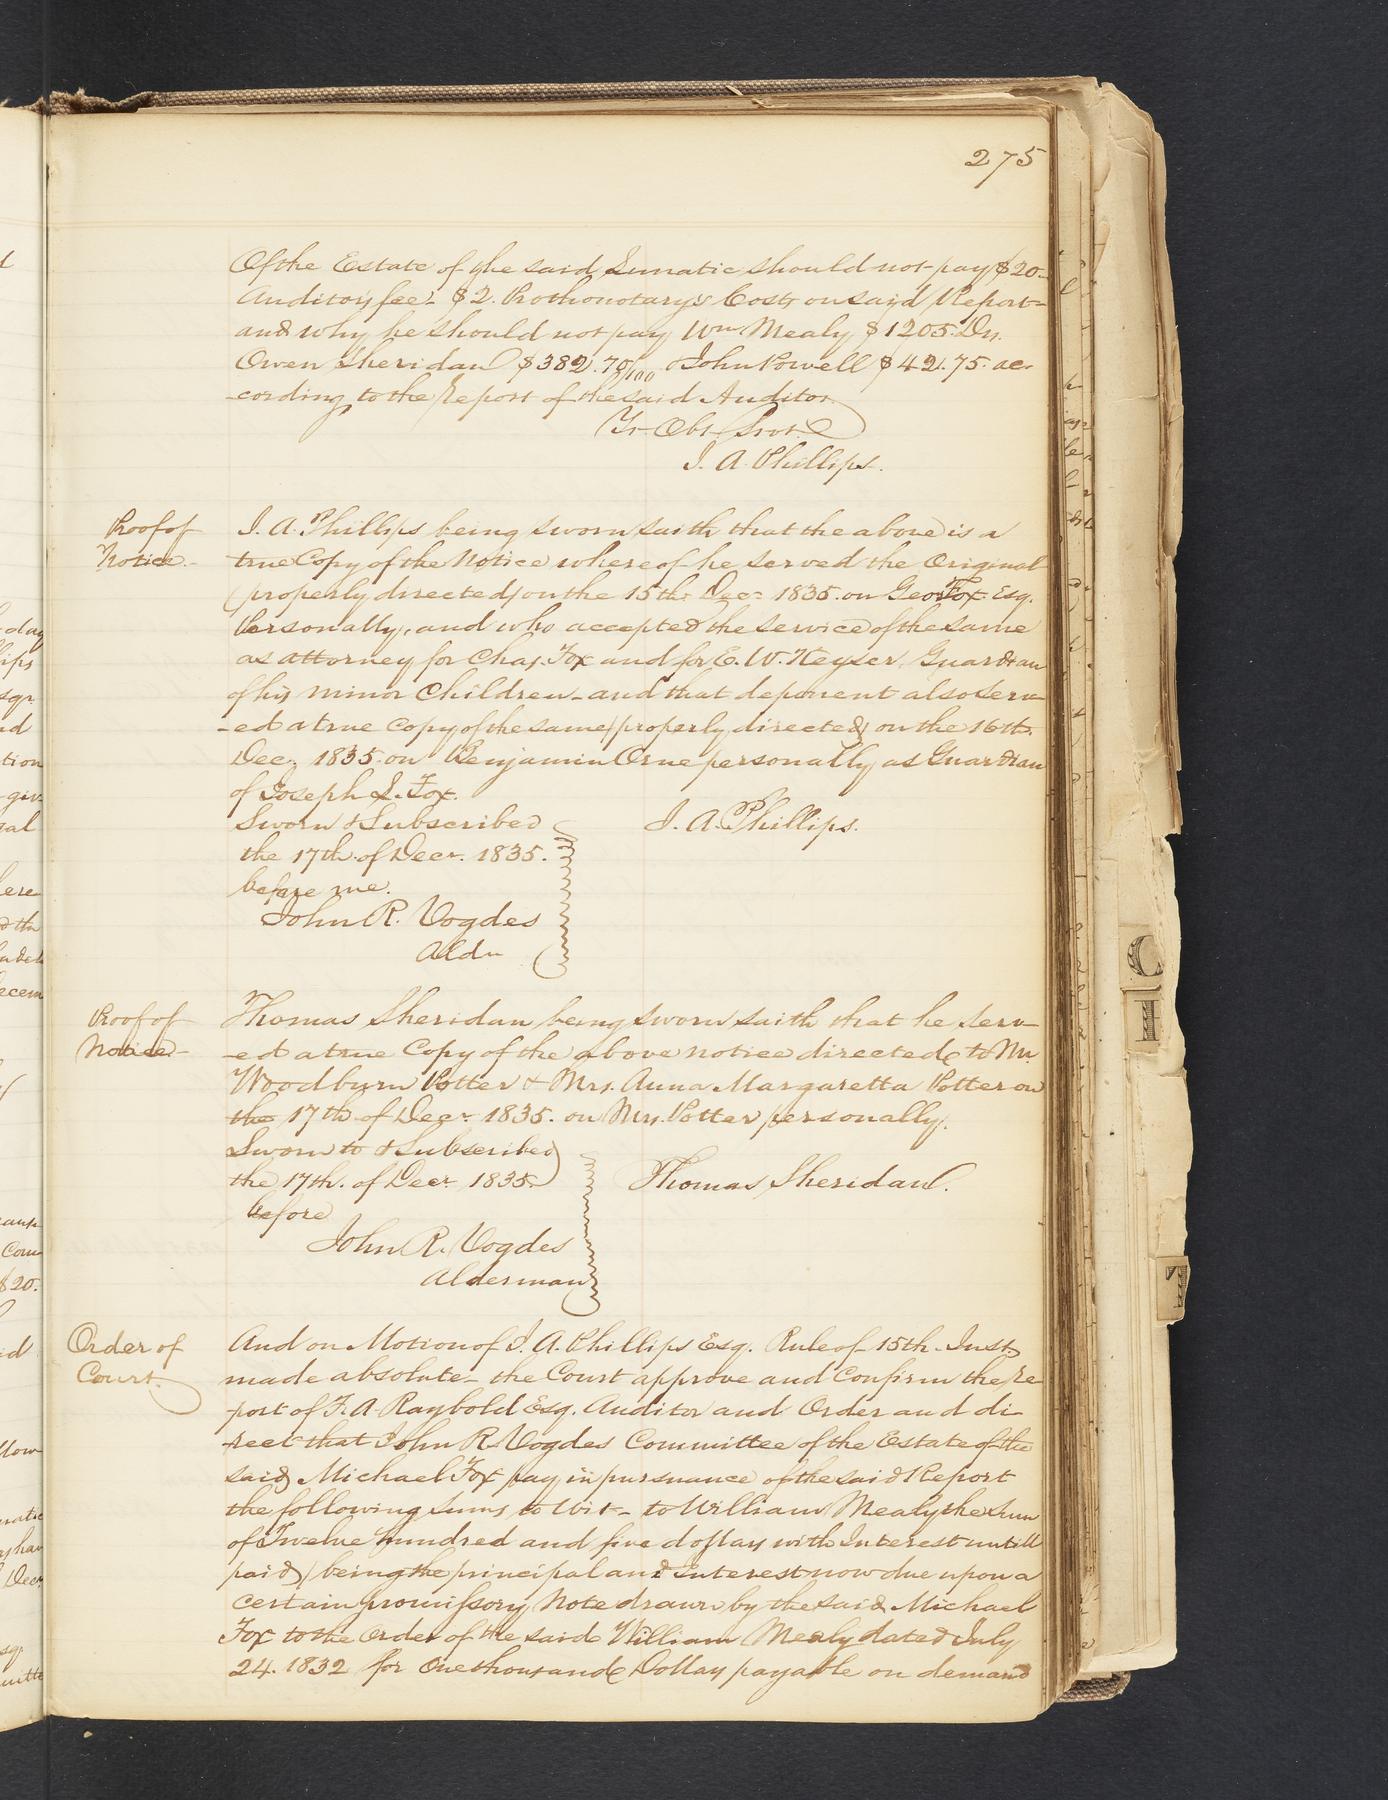 275
Of the Estate of the said Lunatic should not pay $20.
Auditors fee - $2. Prothonotary's Costs on said Report-
and why he should not pay Wm Mealy $1205. Dr.
Owen Sheridan $382.70/100 John Powell $42.75. ac-
cording to the Report of the said Auditor
Yr Obt Srvt.
J. A. Phillips.
Proof of
Notice.-
J. A. Phillips being sworn saith that the above is a
true Copy of the Notice whereof he served the Original
(properly directed) on the 15th Decr 1835. on Geo Fox Esq.
Personally, and who accepted the service of the same
as attorney for Chas. Fox and for E. W. Keyser Guardian
of his minor Children - and that deponent also serv-
-ed a true copy of the same (properly directed) on the 16th
Dec. 1835. on Benjamin Orne personally as Guardian
of Joseph L. Fox.
Sworn & Subscribed
J. A. Phillips.
the 17th. of Decr. 1835.
before me.
John R. Vogdes
Aldn
Proof of
Notice-
Thomas Sheridan being sworn saith that he serv-
-ed a true Copy of the above notice directed to Mr.
Woodburn Potter & Mrs. Anna Margaretta Potter on
the 17th of Decr 1835. on Mrs. Potter personally.
Sworn to & Subscribed
the 17th. of Decr 1835.
Thomas Sheridan.
before
John R. Vogdes
Alderman
Order of
Court.
And on Motion of J. A. Phillips Esq. Rule of 15th. Inst.
made absolute - the Court approve and Confirm the re-
port of F. A. Raybold Esq. Auditor and Order and di-
-rect that John R. Vogdes Committee of the Estate of the
said Michael Fox pay in pursuance of the said Report
the following sums to Wit - to William Mealy the sum
of Twelve hundred and five dollars with Interest untill
paid, (being the principal and Interest now due upon a
certain promissory Note drawn by the said Michael
Fox to the Order of the said William Mealy dated July
24. 1832 for One thousand Dollars payable on demand